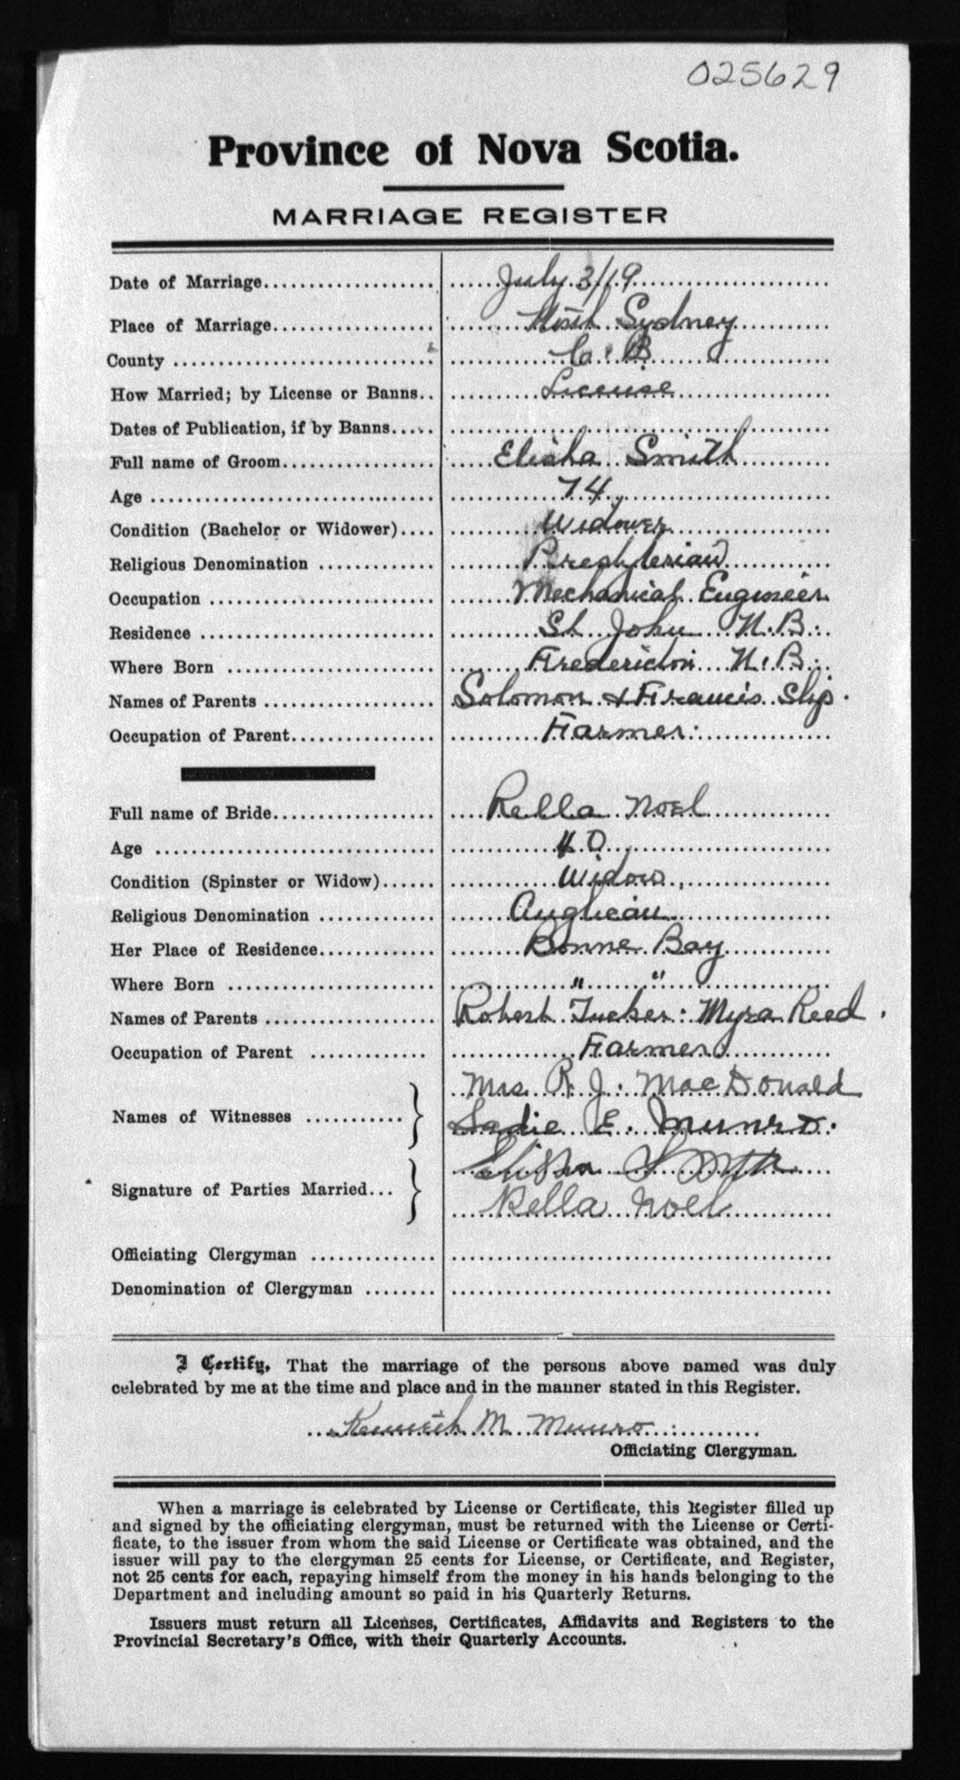 025629
Province of Nova Scotia.
MARRIAGE REGISTER
Date of Marriage July 3/19
Place of Marriage North Sydney
County C. B.
How Married; by License or Banns License
Dates of Publication, if by Banns
Full name of Groom Elisha Smith
Age 74
Condition (Bachelor or Widower) Widower
Religious Denomination Presbyterian
Occupation Mechanical Engineer
Residence St John N.B.
Where Born Fredericton N.B.
Names of Parents Solomon & Francis Slip.
Occupation of Parent Farmer
Full name of Bride Rella Noel
Age 40
Condition (Spinster or Widow) Widow
Religious Denomination Anglican
Her Place of Residence Bonne Bay
Where Born " "
Names of Parents Robert Tucker: Myra Reed.
Occupation of Parent Farmer
Mrs. R. J. MacDonald
Names of Witnesses }
Sadie E. Munro.
Elisha Smith
Signature of Parties Married }
Rella Noel
Officiating Clergyman
Denomination of Clergyman
I Certify, That the marriage of the persons above named was duly
celebrated by me at the time and place and in the manner stated in this Register.
Kenneth M. Munro
Officiating Clergyman.
When a marriage is celebrated by License or Certificate, this Register filled up
and signed by the officiating clergyman, must be returned with the License or Certi-
ficate, to the issuer from whom the said License or Certificate was obtained, and the
issuer will pay to the clergyman 25 cents for License, or Certificate, and Register,
not 25 cents for each, repaying himself from the money in his hands belonging to the
Department and including amount so paid in his Quarterly Returns.
Issuers must return all Licenses, Certificates, Affidavits and Registers to the
Provincial Secretary's Office, with their Quarterly Accounts.